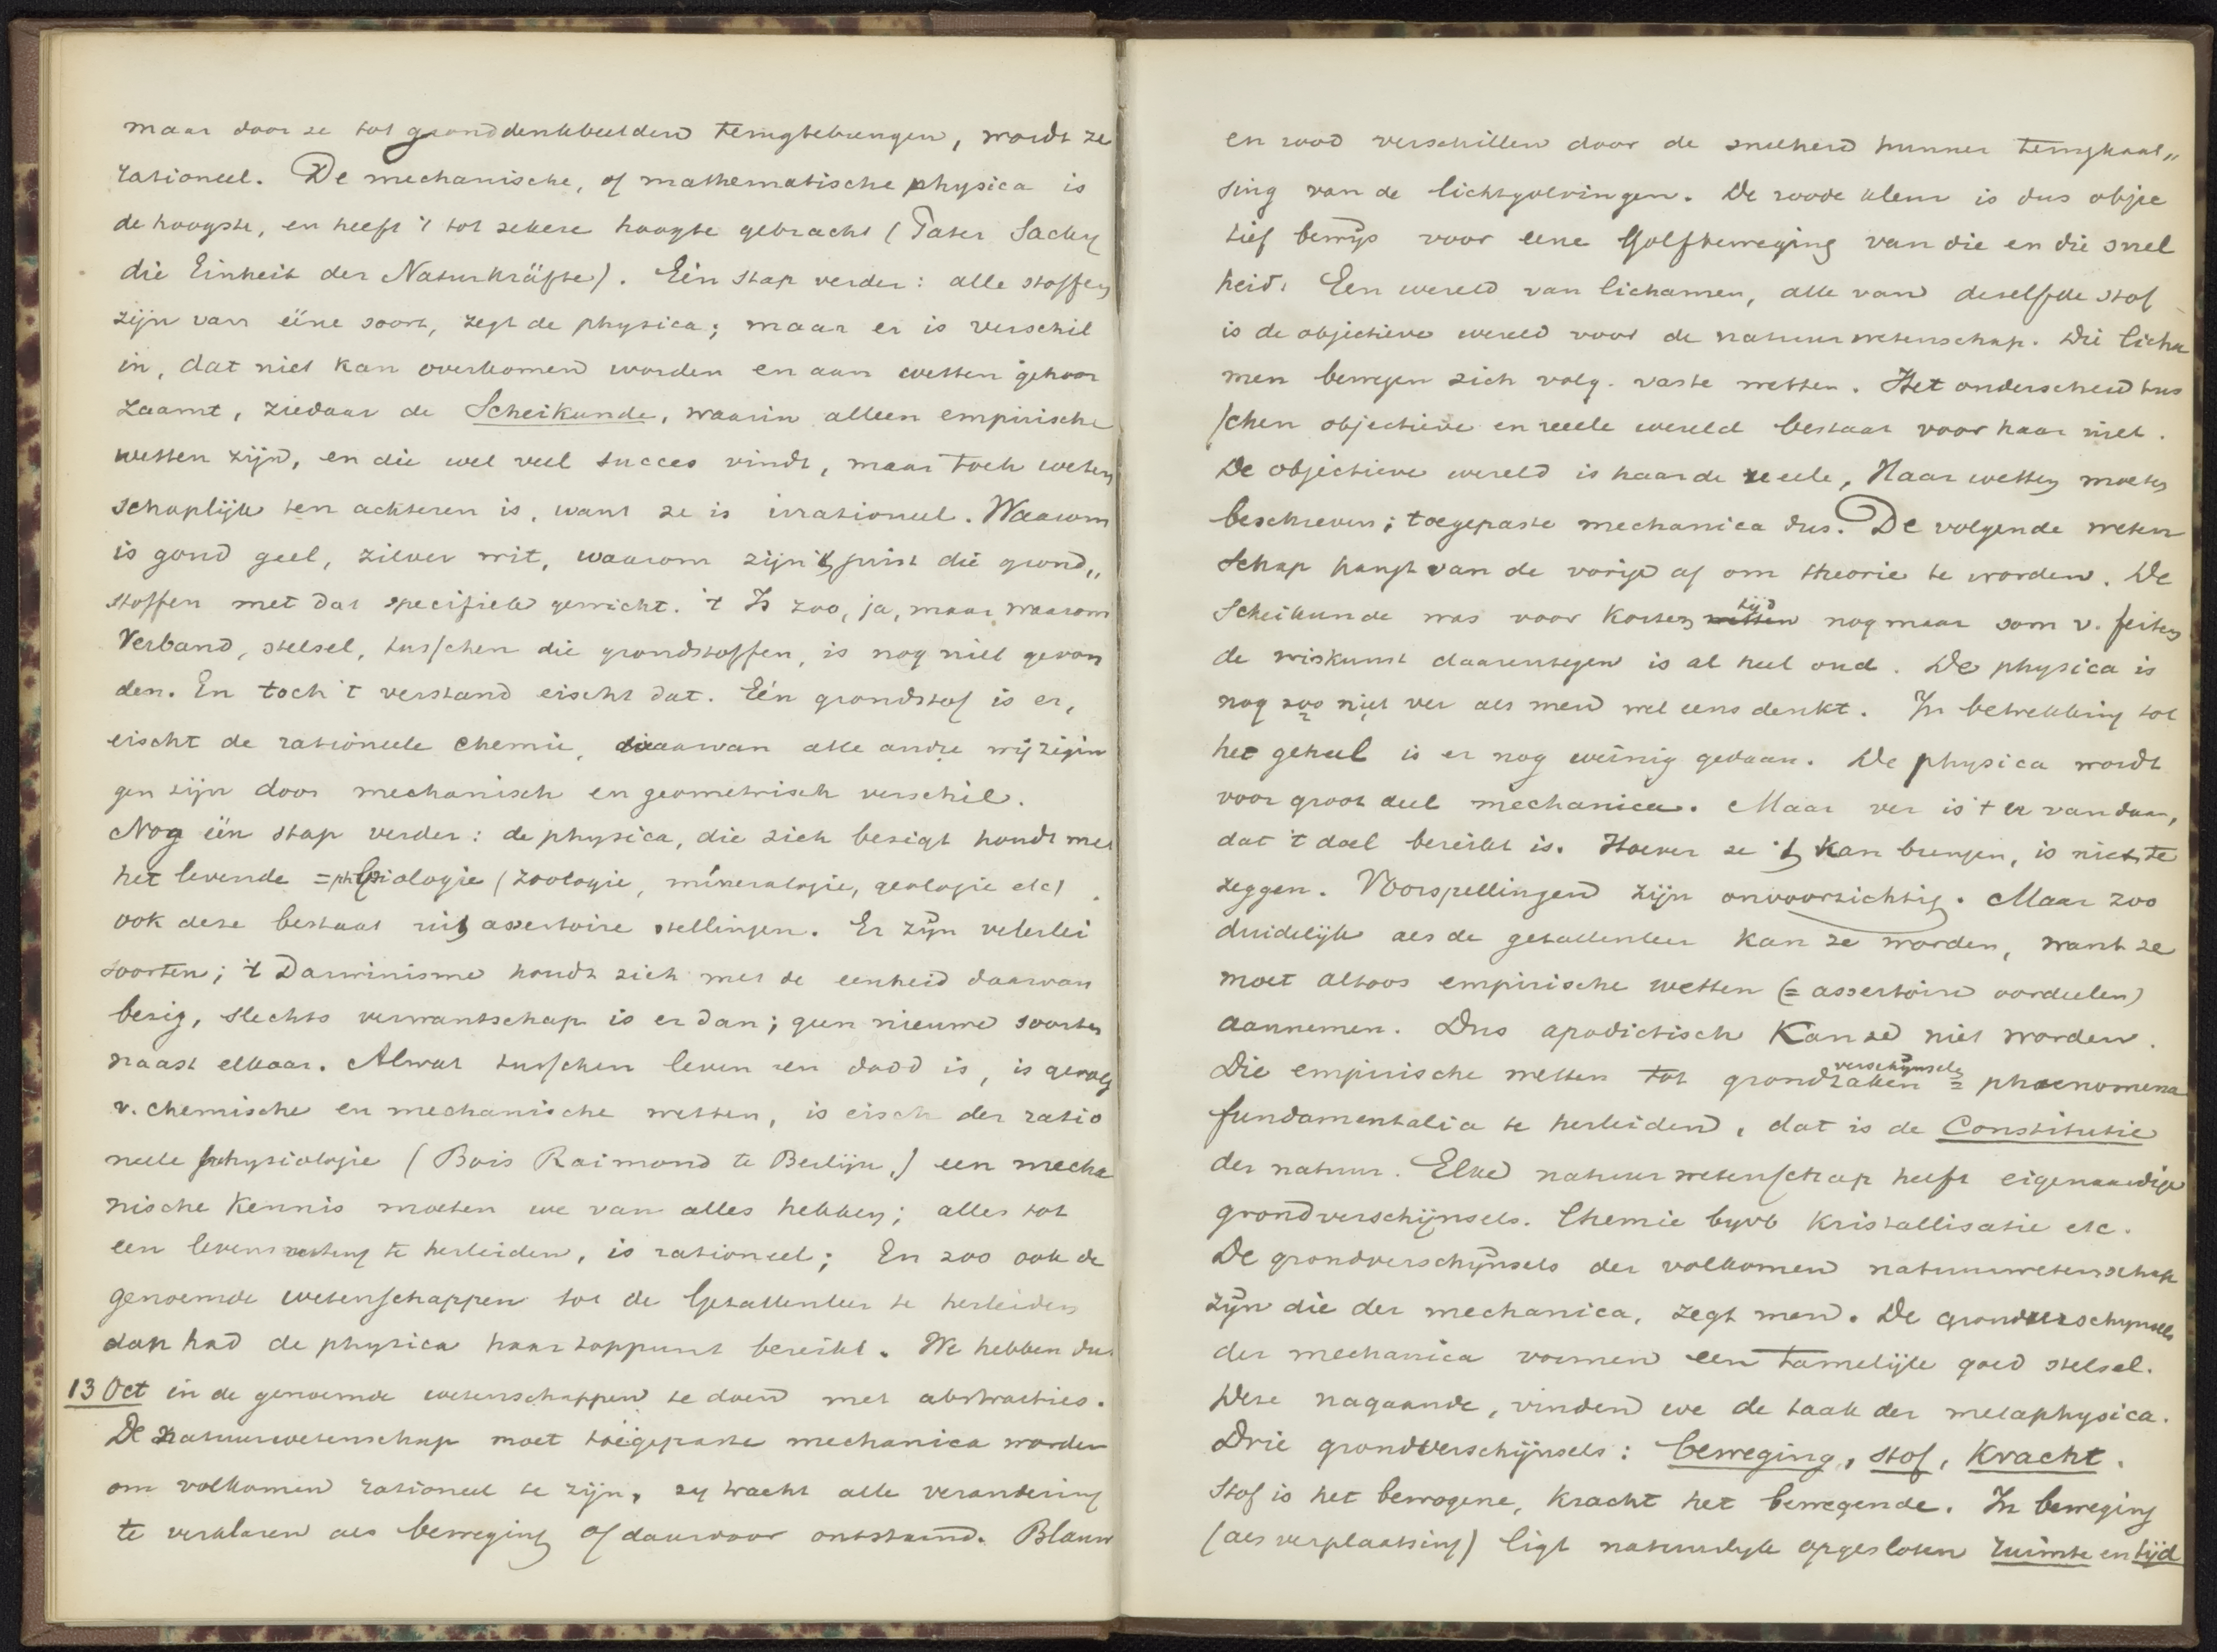 maar door ze tot gronddenkbeelden terugtebrengen, wordt ze
rationeel. De mechanische, of mathematische physica is
de hoogste, en heeft 't tot zekere hoogte gebracht (Pater Sacky
die Einheit der Naturkräfte). Eén stap verder: alle stoffen
zijn van ééne soort, zegt de physica; maar er is verschil
in, dat niet kan overkomen worden en aan wetten gehoor
zaamt, ziedaar de Scheikunde, waarin alleen empirische
wetten zijn, en die wel veel succes vindt, maar toch weten
schaplijk ten achteren is, want ze is irrationeel. Waarom
is goud geel, zilver wit, waarom zijn 't juist die grond„
stoffen met dat specifiek gewicht. 't Is zoo, ja, maar waarom
Verband, stelsel, tusschen die grondstoffen, is nog niet gevon
den. En toch 't verstand eischt dat. Eén grondstof is er,
eischt de rationeele chemie, daarvan alle andre wijzigin
gen zijn door mechanisch en geometrisch verschil.
Nog één stap verder: de physica, die zich bezigt houdt met
het levende = physiologie (zoologie, mineralogie, geologie etc)
ook deze bestaat uit assertoire stellingen. Er zijn velerlei
soorten; 't Darwinisme houdt zich met de eenheid daarvan
bezig, slechts verwantschap is er dan; geen nieuwe soorten
naast elkaar. Alwat tusschen leven en dood is, is gevolg
v. chemische en mechanische wetten, is eisch der ratio
neele physiologie (Bois Raimond te Berlijn.) een mecha
nische kennis moeten we van alles hebben; alles tot
een levens te herleiden, is rationeel; En zoo ook de
genoemde wetenschappen tot de Getallenleer te herleiden
dan had de physica haar toppunt bereikt. We hebben dus
13 Oct in de genoemde wetenschappen te doen met abstracties.
De natuurwetenschap moet toegepaste mechanica worden
om volkomen rationeel te zijn, zy tracht alle verandering
te verklaren als beweging of daardoor ontstaand. Blauw
en rood verschillen door de snelheid hunner terugkaat„
sing van de lichtgolvingen. De roode kleur is dus objec
tief bewijs voor eene Golfbeweging van die en die snel
heid. Een wereld van lichamen, alle van deselfde stof
is de objectieve wereld voor de natuurwetenschap. Die licha
men bewegen zich volg. vaste wetten. Het onderscheid tus
schen objectieve en reeele wereld bestaat voor haar niet.
De objectieve wereld is haar de reeele, Haar wetten moeten
beschreven; toegepaste mechanica dus. De volgende weten
schap hangt van de vorige af om theorie te worden. De
Scheikunde was voor korten wetten tijd nog maar som v. feiten
de wiskunst daarentegen is al heel oud. De physica is
nog zoo niet ver als men wel eens denkt. In betrekking tot
het geheel is er nog weinig gedaan. De physica wordt
voor groot deel mechanica. Maar ver is 't er vandaan,
dat 't doel bereikt is. Hoever ze 't kan brengen, is niet te
zeggen. Voorspellingen zijn onvoorzichtig. Maar zoo
duidelijk als de getallenleer kan ze worden, want ze
moet altoos empirische wetten (= assertoire oordeelen)
aannemen. Dus apodictisch kan ze niet worden.
Die empirische wetten tot grondzaken verschijnselen = phaenomena
fundamentalia te herleiden, dat is de Constitutie
der natuur. Elke natuurwetenschap heeft eigenaardige
grondverschijnsels. Chemie byvb kristallisatie etc.
De grondverschijnsels der volkomen natuurwetenschap
zijn die der mechanica, zegt men. De grondverschijnsels
der mechanica vormen een tamelijk goed stelsel.
Deze nagaande, vinden we de taak der metaphysica.
Drie grondverschijnsels: beweging, stof, kracht.
Stof is het bewogene, kracht het bewegende. In beweging
(als verplaatsing) ligt natuurlyk opgesloten ruimte en tijd